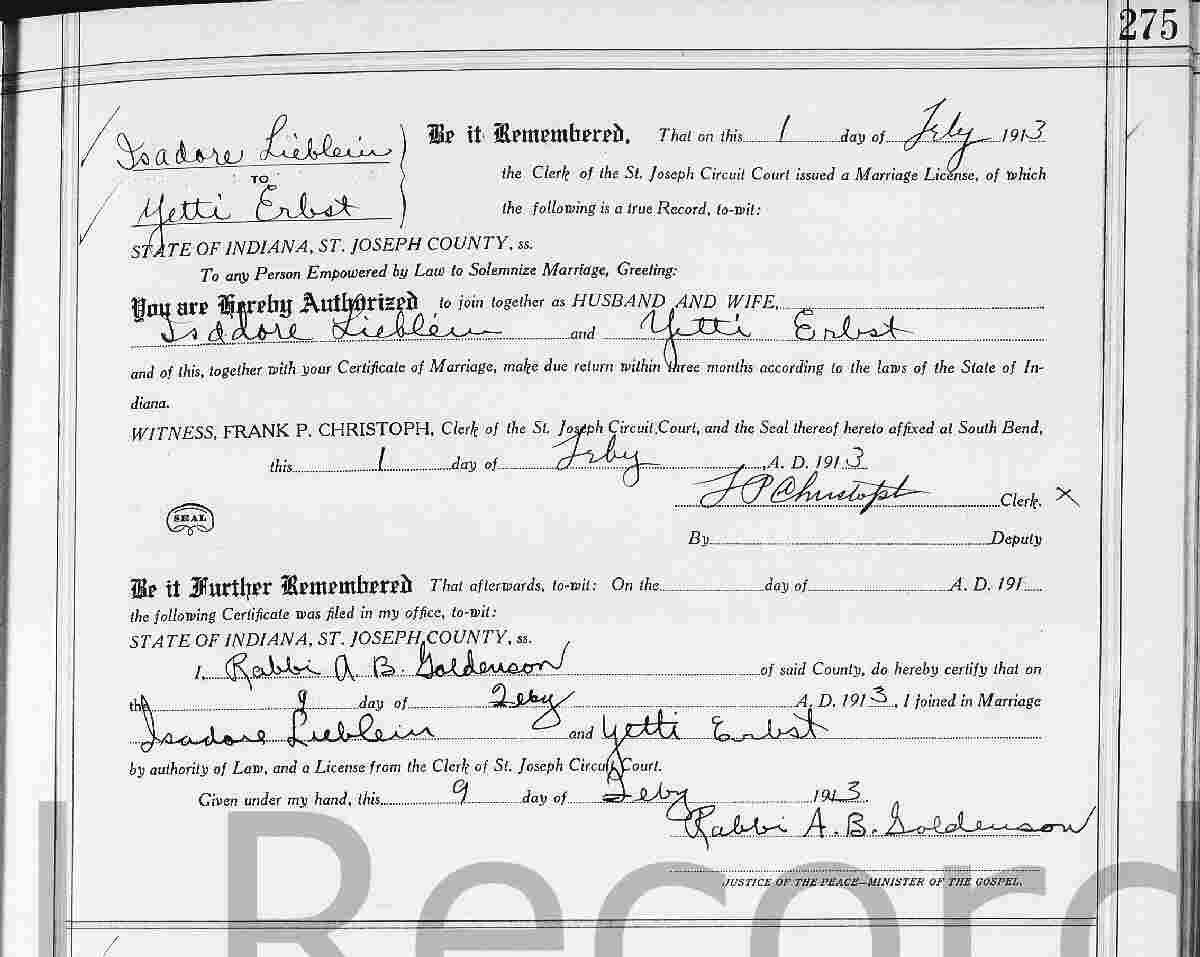 275
Isadore Lieblein
TO
Yetti Erbst
Be it Remembered, That on this 1 day of Feby 1913
the Clerk of the St. Joseph Circuit Court issued a Marriage License, of which
the following is a true Record, to-wit:
STATE OF INDIANA, ST. JOSEPH COUNTY, ss.
To any Person Empowered by Law to Solemnize Marriage, Greeting:
You are Hereby Authorized to join together as HUSBAND AND WIFE,
Isadore Lieblein and Yetti Erbst
and of this, together with your Certificate of Marriage, make due return within three months according to the laws of the State of In-
diana.
WITNESS, FRANK P. CHRISTOPH, Clerk of the St. Joseph Circuit Court, and the Seal thereof hereto affixed at South Bend,
this 1 day of Feby, A. D. 1913
F P Christoph Clerk. X
SEAL
By Deputy
Be it Further Remembered That afterwards, to-wit: On the day of A. D. 191
the following Certificate was filed in my office, to-wit:
STATE OF INDIANA, ST. JOSEPH COUNTY, ss.
I, Rabbi A. B. Goldenson of said County, do hereby certify that on
the 9 day of Feby A. D. 1913, I joined in Marriage
Isadore Lieblein and Yetti Erbst
by authority of Law, and a License from the Clerk of St. Joseph Circuit Court.
Given under my hand, this 9 day of Feby 1913.
Rabbi A. B. Goldenson
JUSTICE OF THE PEACE—MINISTER OF THE GOSPEL.
Recor